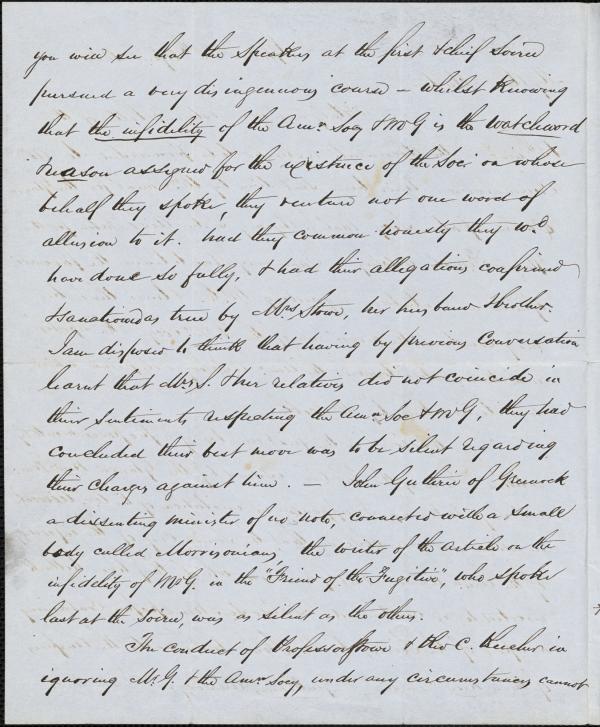 you will see that the speakers at the first & chief Soiree
pursued a very disingenuous course – whilst knowing
that the infidelity of the Amn. Socy & W G is the watchword
reason assigned for the existence of the Soc. on whose
behalf they spoke, they venture not one word of
allusion to it. had they common honesty they wd
have done so fully, & had their allegations confirmed
& sanctioned as true by Mrs Stowe, her husband & brother.
I am disposed to think that having by previous Conversation
learnt that Mrs S. & her relatives did not coincide in
their sentiments respecting the Amn Soc & W G, they had
concluded their best move was to be silent regarding
their charges against him. — John Guthrie of Greenock
a dissenting minister of no note, connected with a small
body called Morrisonians, the writer of the article on the
infidelity of W G. in the "Friend of the Fugitive", who spoke
last at the Soiree, was as silent as the others.
The conduct of Professor Stowe & the C. Beecher in
ignoring Mr. G. & the Amn Socy, under any circumstances cannot